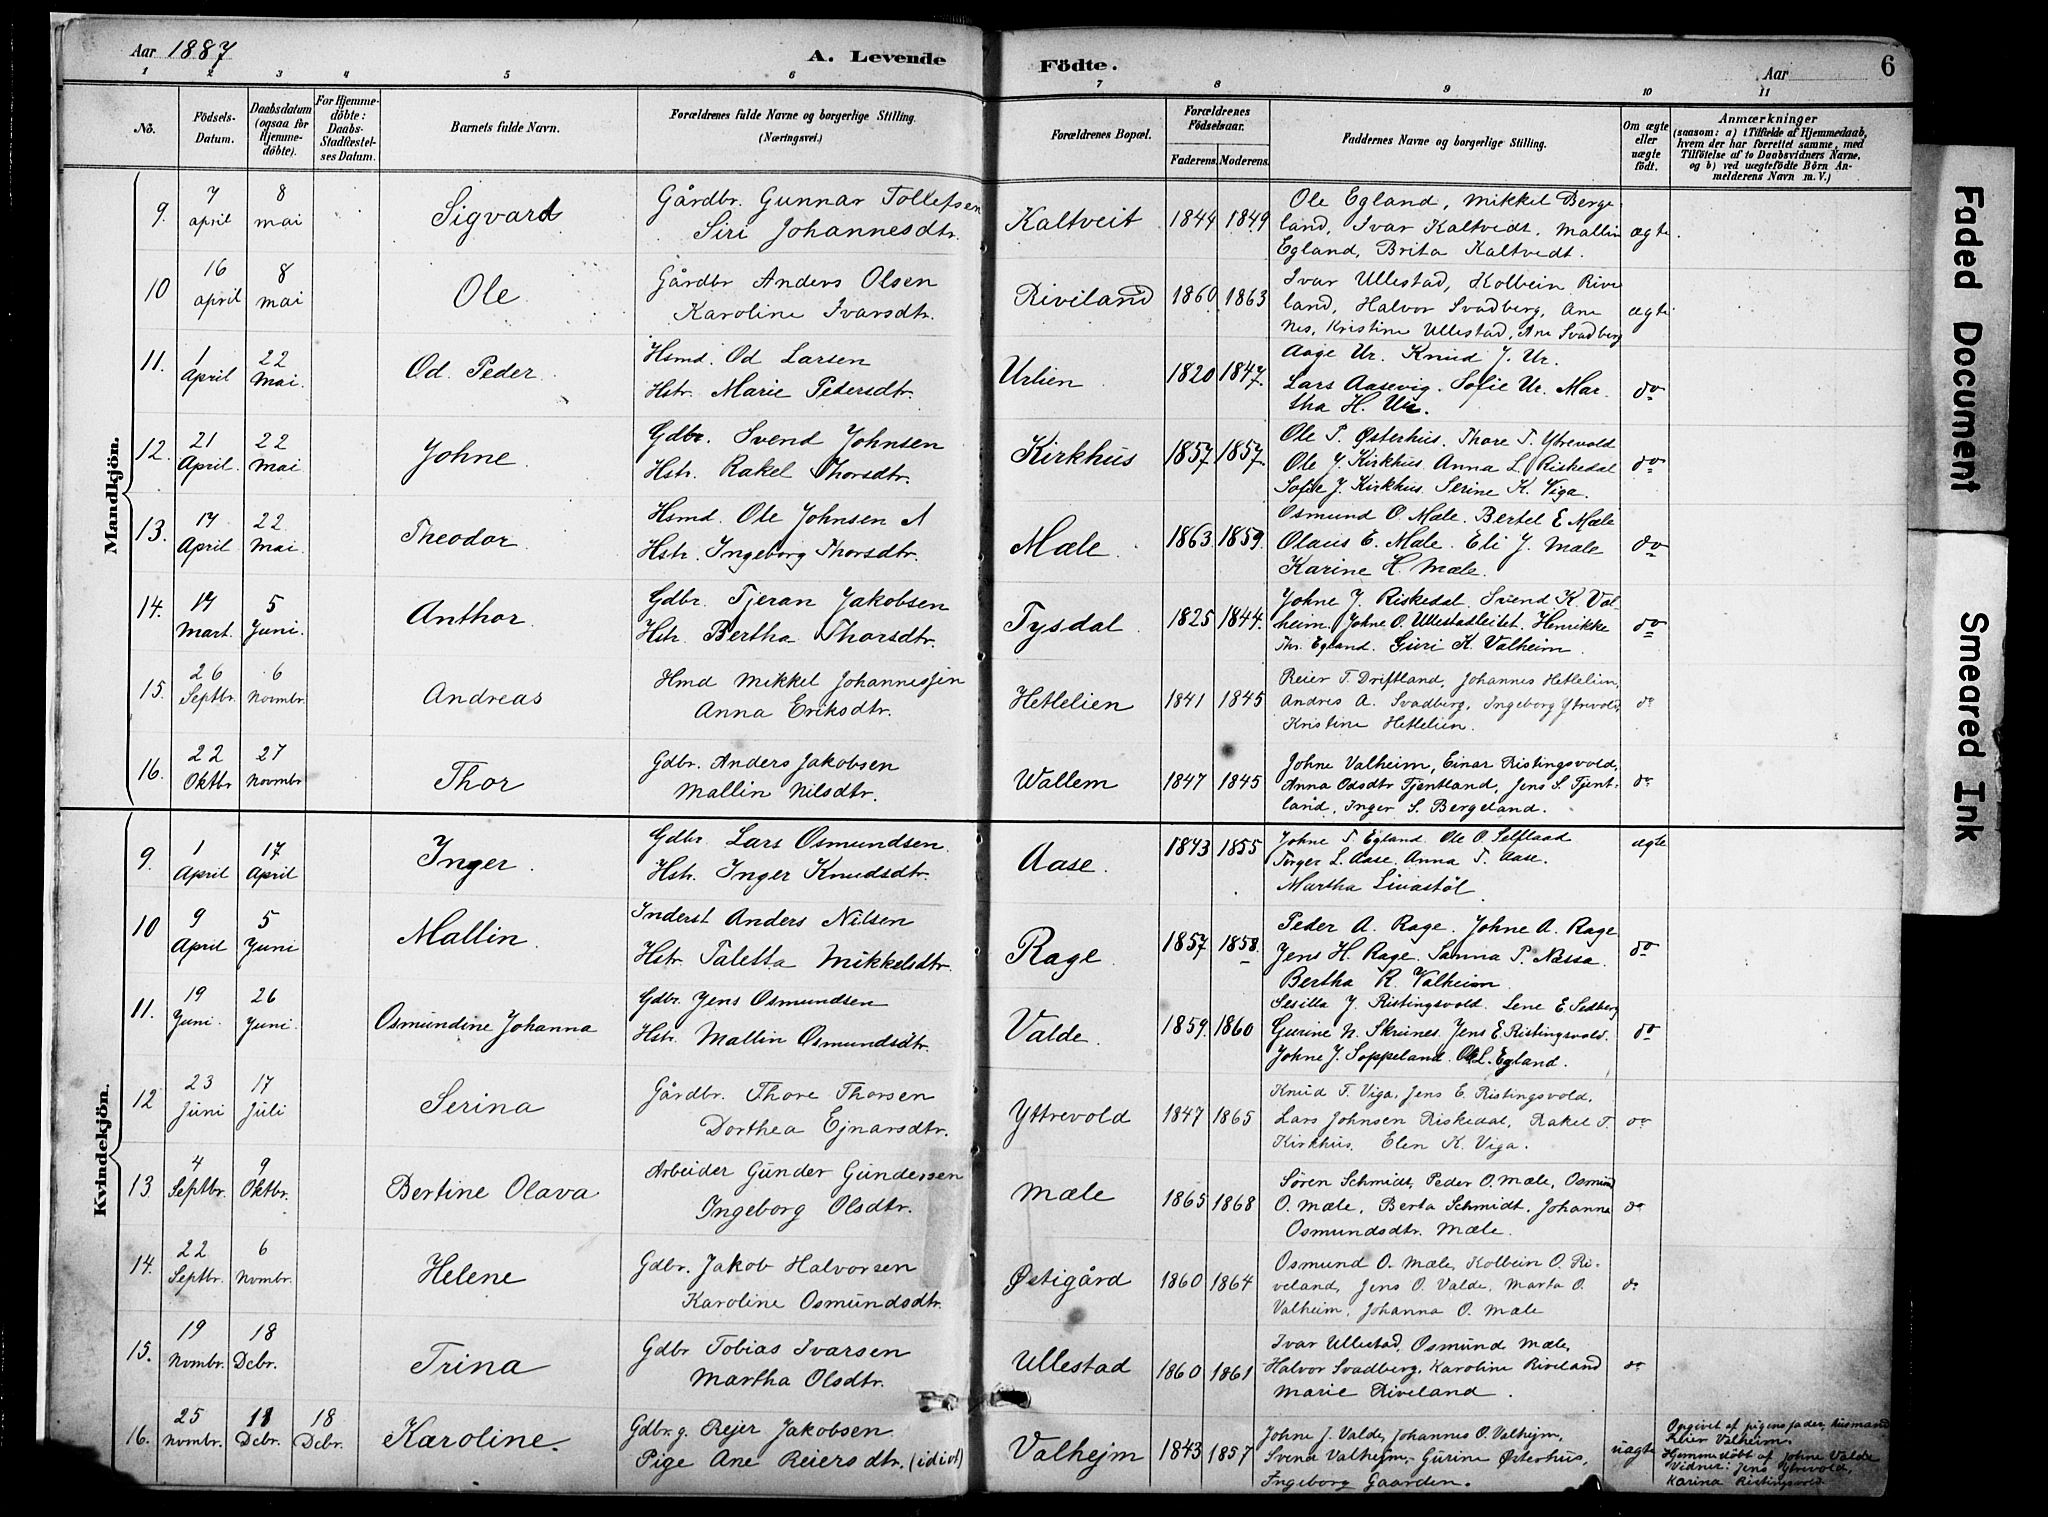 Aar 1887
A. Levende Födte.
Aar
6
1 2 3 4 5 6 7 8 9 10 11
No.
Födsels-Datum.
Daabsdatum (ogsaa for Hjemmedöbte).
For Hjemmedöbte: Daabs-Stadfæstelses Datum.
Barnets fulde Navn.
Forældrenes fulde Navne og borgerlige Stilling. (Næringsvei.)
Forældrenes Bopæl.
Forældrenes Födselsaar.
Faderens. Moderens.
Faddernes Navne og borgerlige Stilling.
Om ægte eller uægte födt.
Anmærkninger
(saasom: a) i Tilfælde af Hjemmedaab, hvem der har forrettet samme, med Tilföielse af to Daabsvidners Navne, og b) ved uægtefödte Börn Anmelderens Navn m. V.)
Mandkjön.
9. 7 april 8 mai Sigvard Gårdbr. Gunnar Tollefsen
Siri Johannesdtr. Kaltveit 1844 1849
Ole Egland, Mikkel Berge
land, Ivar Kaltvedt, Mallin
Egland, Brita Kaltvedt. ægte.
10 16 april 8 mai Ole Gårdbr Anders Olsen
Karoline Ivarsdtr. Riviland 1860 1863
Ivar Ullestad, Kolbein Rive
land, Halvor Svadberg, Ane
Nes, Kristine Ullestad, Ane Svadberg ægte
11. 1 April 22 Mai. Od. Peder. Hsmd. Od Larsen
Hstr. Marie Pedersdtr. Urlien 1820 1847.
Aage Ur. Knud J. Ur.
Lars Aasevig. Sofie Ur. Mar-
tha H. Ur. do
12. 21 April. 22 Mai Johne. Gdbr. Svend Johnsen
Hstr. Rakel Thorsdtr. Kirkhus 1857. 1857.
Ole T. Østerhus. Thore T. Ytrevold
Ole J. Kirkhus. Anna L. Riskedal
Sofie J. Kirkhus. Serine K. Viga. do
13. 17 April 22 Mai. Theodor. Hsmd. Ole Johnsen
Hstr. Ingeborg Thorsdtr. Mæle. 1863. 1859.
Osmund O. Mæle. Bertel E. Mæle
Olaus E. Mæle. Eli J. Mæle
Karine H. Mæle. do
14. 17 Mart. 5 Juni. Anthor. Gdbr. Tjeran Jakobsen
Hstr. Bertha Thorsdtr. Tysdal. 1825 1844.
Johne J. Riskedal. Svend K. Val-
heim. Johne O. Ullestadleitet. Henrikke
Thr. Egland. Guri K. Valheim. do
15. 26 Septbr. 6 Novmbr. Andreas Hmd Mikkel Johannesjen
Anna Eriksdtr. Hetlelien 1841 1845
Reier T. Driftland, Johannes Hetlelien,
Andres A. Svadberg, Ingeborg Ytrevold,
Kristine Hetlelien do
16. 22 Oktbr 27 Novmbr Thor Gdbr. Anders Jakobsen
Mallin Nilsdtr. Wallem 1847 1845
Johne Valheim, Einar Ristingsvold,
Anna Odsdtr Tjentland, Jens S. Tjent-
land, Inger S. Bergeland. do
Kvindekjön.
9. 1 April 17 April Inger. Gdbr. Lars Osmundsen.
Hstr. Inger Knudsdtr. Aase. 1843 1855
Johne T. Egland. Ole O. Selflaad
Torger L. Aase. Anna T. Aase.
Martha Livastöl ægte
10 9 April 5 Juni Mallin. Inderst Anders Nilsen
Hstr. Taletta Mikkelsdtr. Rage. 1857. 1858.
Peder A. Rage. Johne A. Rage
Jens H. Rage. Sanna P. Næssa.
Bertha R. Valheim. do
11. 19 Juni. 26 Juni. Osmundine Johanna Gdbr. Jens Osmundsen
Hstr. Mallin Osmundsdtr. Valde. 1859. 1860
Sesilla J. Ristingsvold. Lene E. Sedberg
Gurine N. Skrunes. Jens E. Ristingsvold.
Johne J. Soppeland. Ole L. Egland. do
12 23 Juni 17 Juli Serina Gårdbr. Thore Thorsen
Dorthea Ejnarsdtr. Yttrevold 1847 1865
Knud T. Viga, Jens E. Ristingsvold,
Lars Johnsen Riskedal, Rakel T.
Kirkhus, Elen K. Viga. do
13 4 Septbr. 9 Oktbr. Bertine Olava Arbeider Gunder Gundersen
Ingeborg Olsdtr. Mæle 1865 1868
Søren Schmidt, Peder O. Mæle, Osmund
O. Mæle, Berta Schmidt, Johanna
Osmundsdtr. Mæle. do
14. 22 Septbr. 6 Nvmbr. Helene Gdbr. Jakob Halvorsen
Karoline Osmundsdtr. Østigård 1860 1864
Osmund O. Mæle, Kolbein O. Ri-
veland, Jens O. Valde, Marta O.
Valheim, Johanna O. Mæle do
15. 19 Nvmbr. 18 Debr. Trina Gdbr Tobias Ivarsen
Martha Olsdtr. Ullestad 1860 1861
Ivar Ullestad, Osmund Mæle,
Halvor Svadberg, Karoline Riveland
Marie Riveland. do
16. 25 Nvmbr. 18 Debr. 18 Debr. Karoline. Gdbr.g. Rejer Jakobsen
Pige Ane Reiersdtr. (idiot) Valhejm 1843 1857
Johne J. Valde, Johannes O. Valhejm,
Svend Valhejm, Gurine Østerhus,
Ingeborg Gaarden. uægte
Opgivet af pigens fader, husmand
Reier Valheim.
Hjemmedöbt af Johne Valde
Vidner: Jens Ytrevold,
Karina Ristingsvold
Faded Document
Smeared Ink